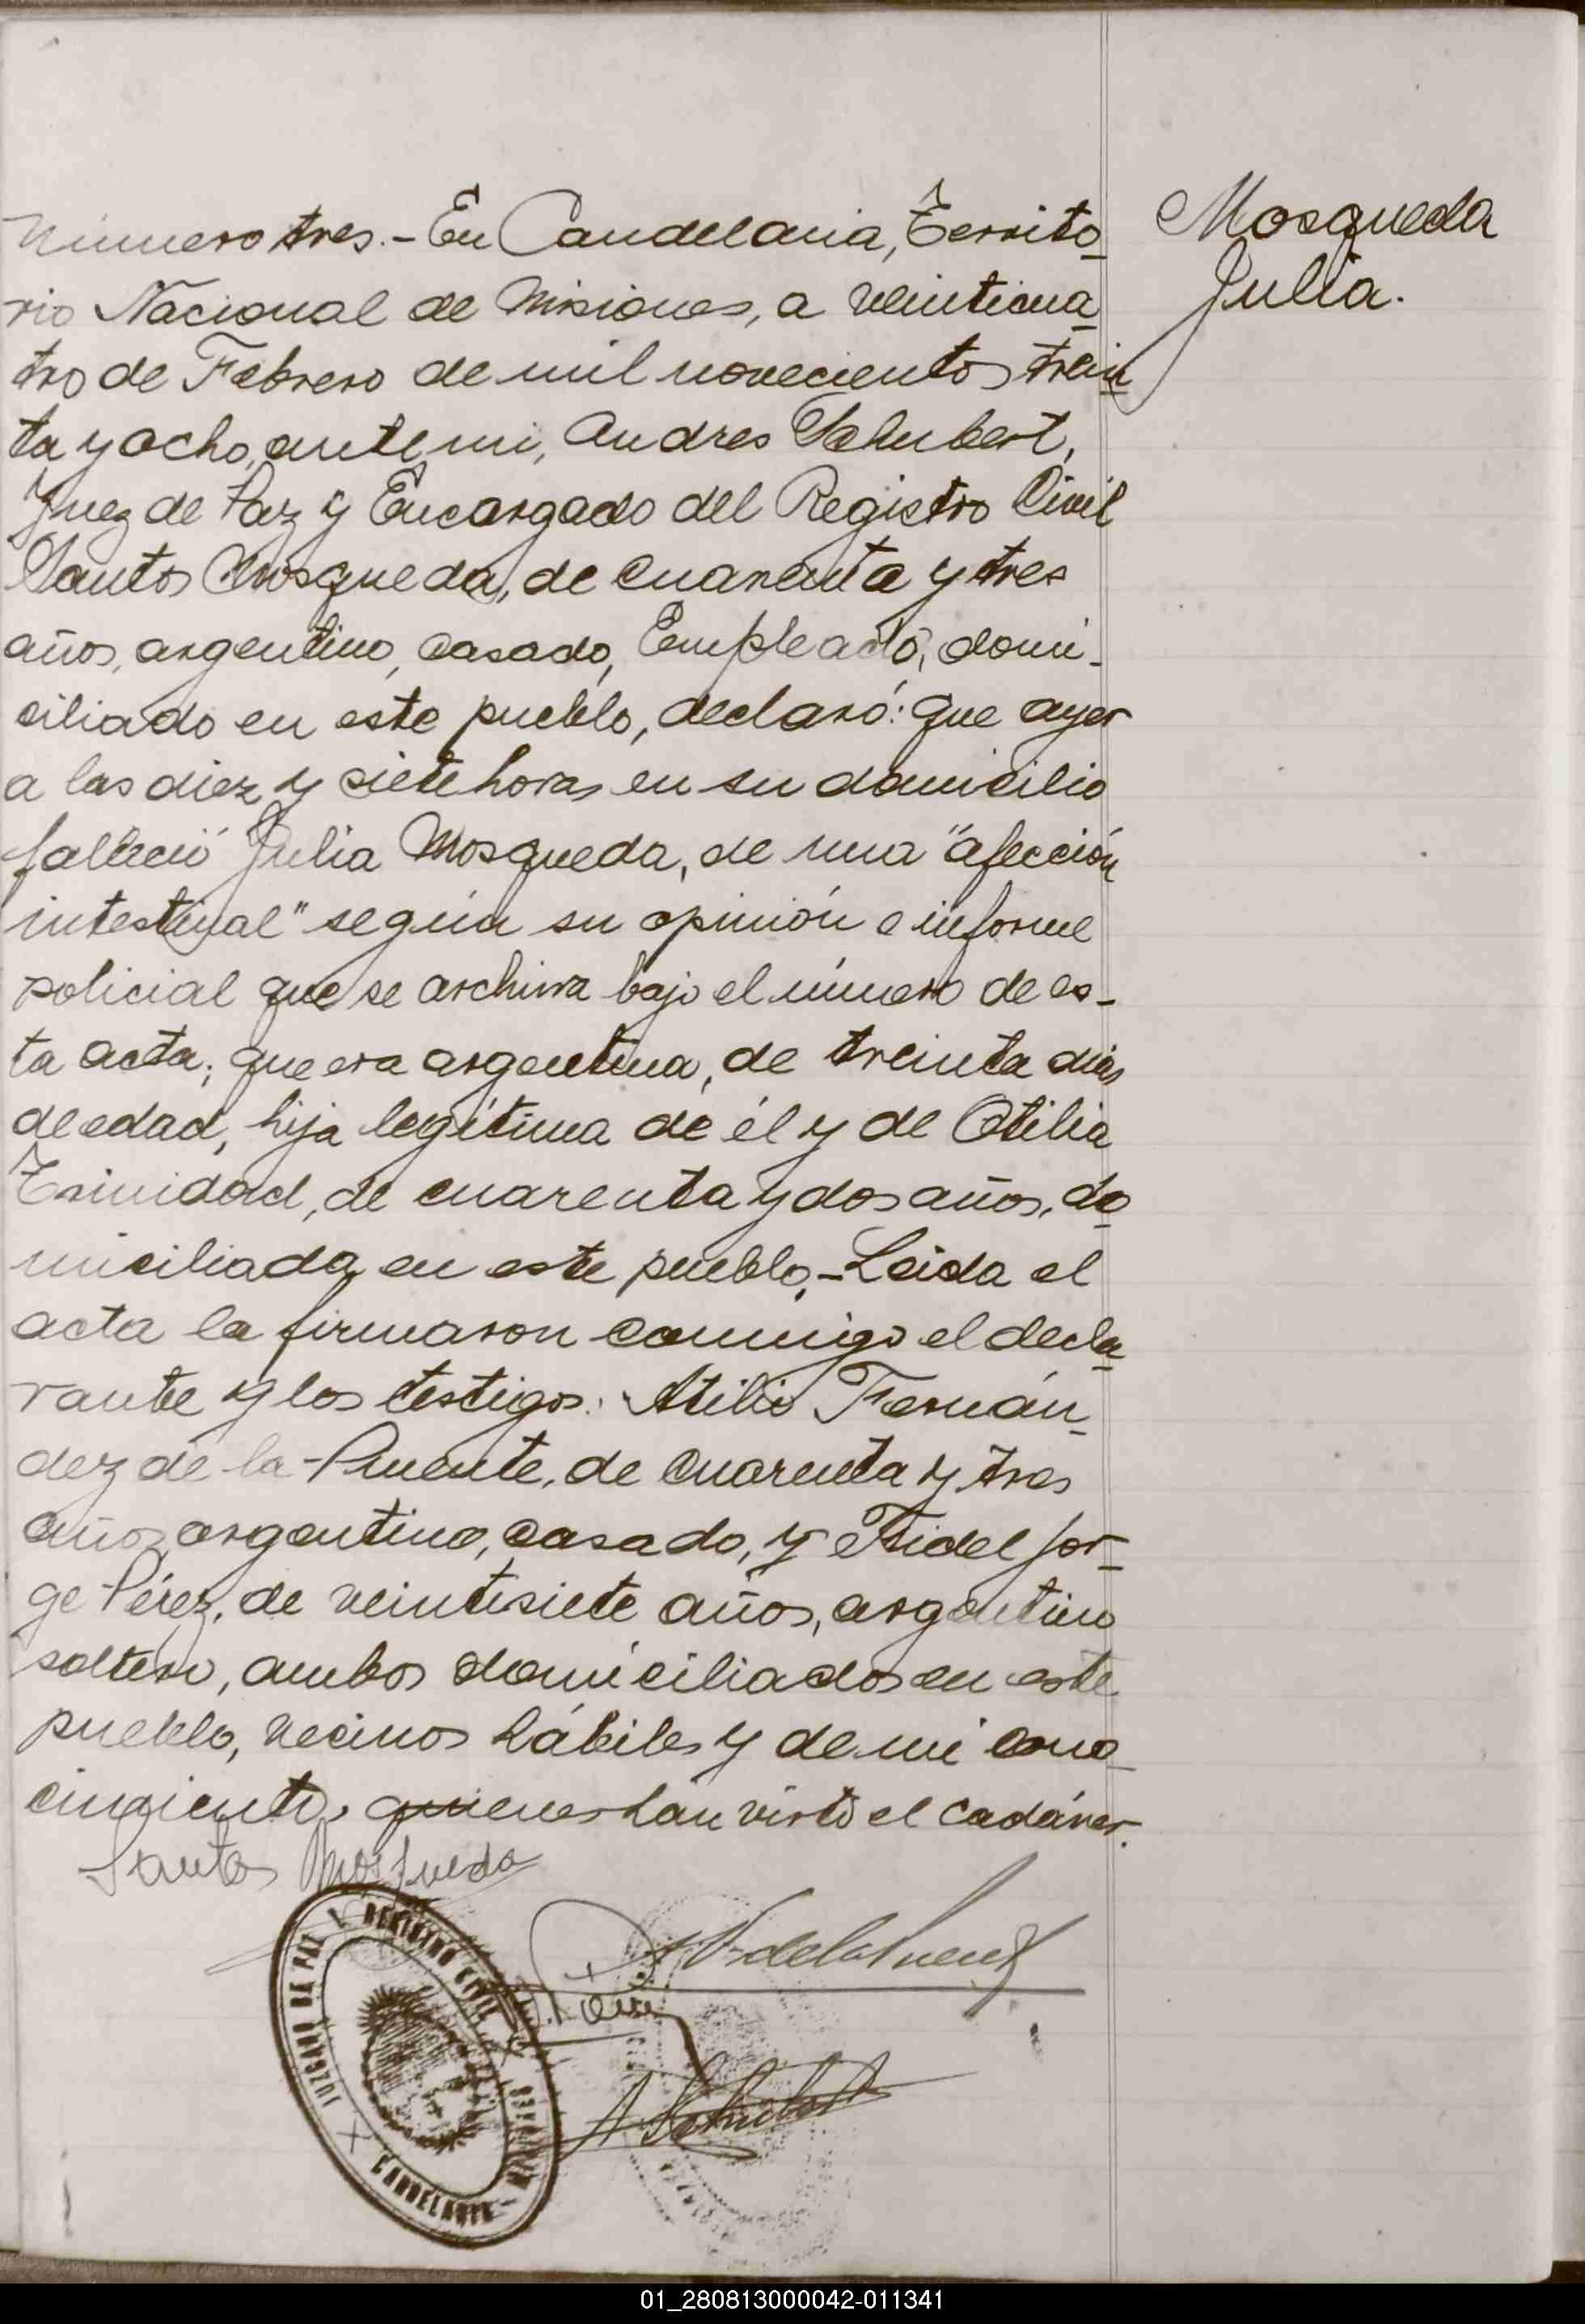 Número tres.- En Candelaria, Territo
Mosqueda
Julia.
rio Nacional de Misiones, a veinticua
tro de Febrero de mil novecientos trein
ta y ocho, ante mi, Andres Schubert,
Juez de Paz y Encargado del Registro Civil
Santos Mosqueda, de cuarenta y tres
años, argentino, casado, Empleado, domi-
ciliado en este pueblo, declaró: que ayer
a las diez y siete horas en su domicilio
falleció Julia Mosqueda, de una "afección
intestinal" según su opinión e informe
policial que se archiva bajo el número de es-
ta acta; que era argentina, de treinta días
de edad, hija legítima de él y de Otilia
Trinidad, de cuarenta y dos años, do
miciliada en este pueblo.- Leida el
acta la firmaron conmigo el decla
rante y los testigos: Atilio Fernán
dez de la Puente, de cuarenta y tres
años, argentino, casado, y Fidel Jor-
ge Pérez, de veintisiete años, argentino
soltero, ambos domiciliados en este
pueblo, vecinos hábiles y de mi cono
cimiento, quienes han visto el cadáver.
Santos Mosqueda
F. de la Puente
A Schubert
JUZGADO DE PAZ Y REGISTRO CIVIL
CANDELARIA
01_280813000042-011341